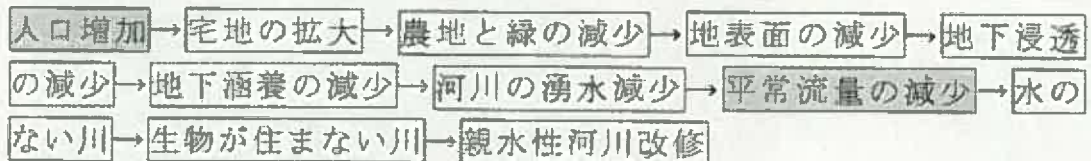 人口増加→宅地の拡大→農地と緑の減少→地表面の減少→地下浸透
の減少→地下涵養の減少→河川の湧水減少→平常流量の減少→水の
ない川→生物が住まない川→親水性河川改修